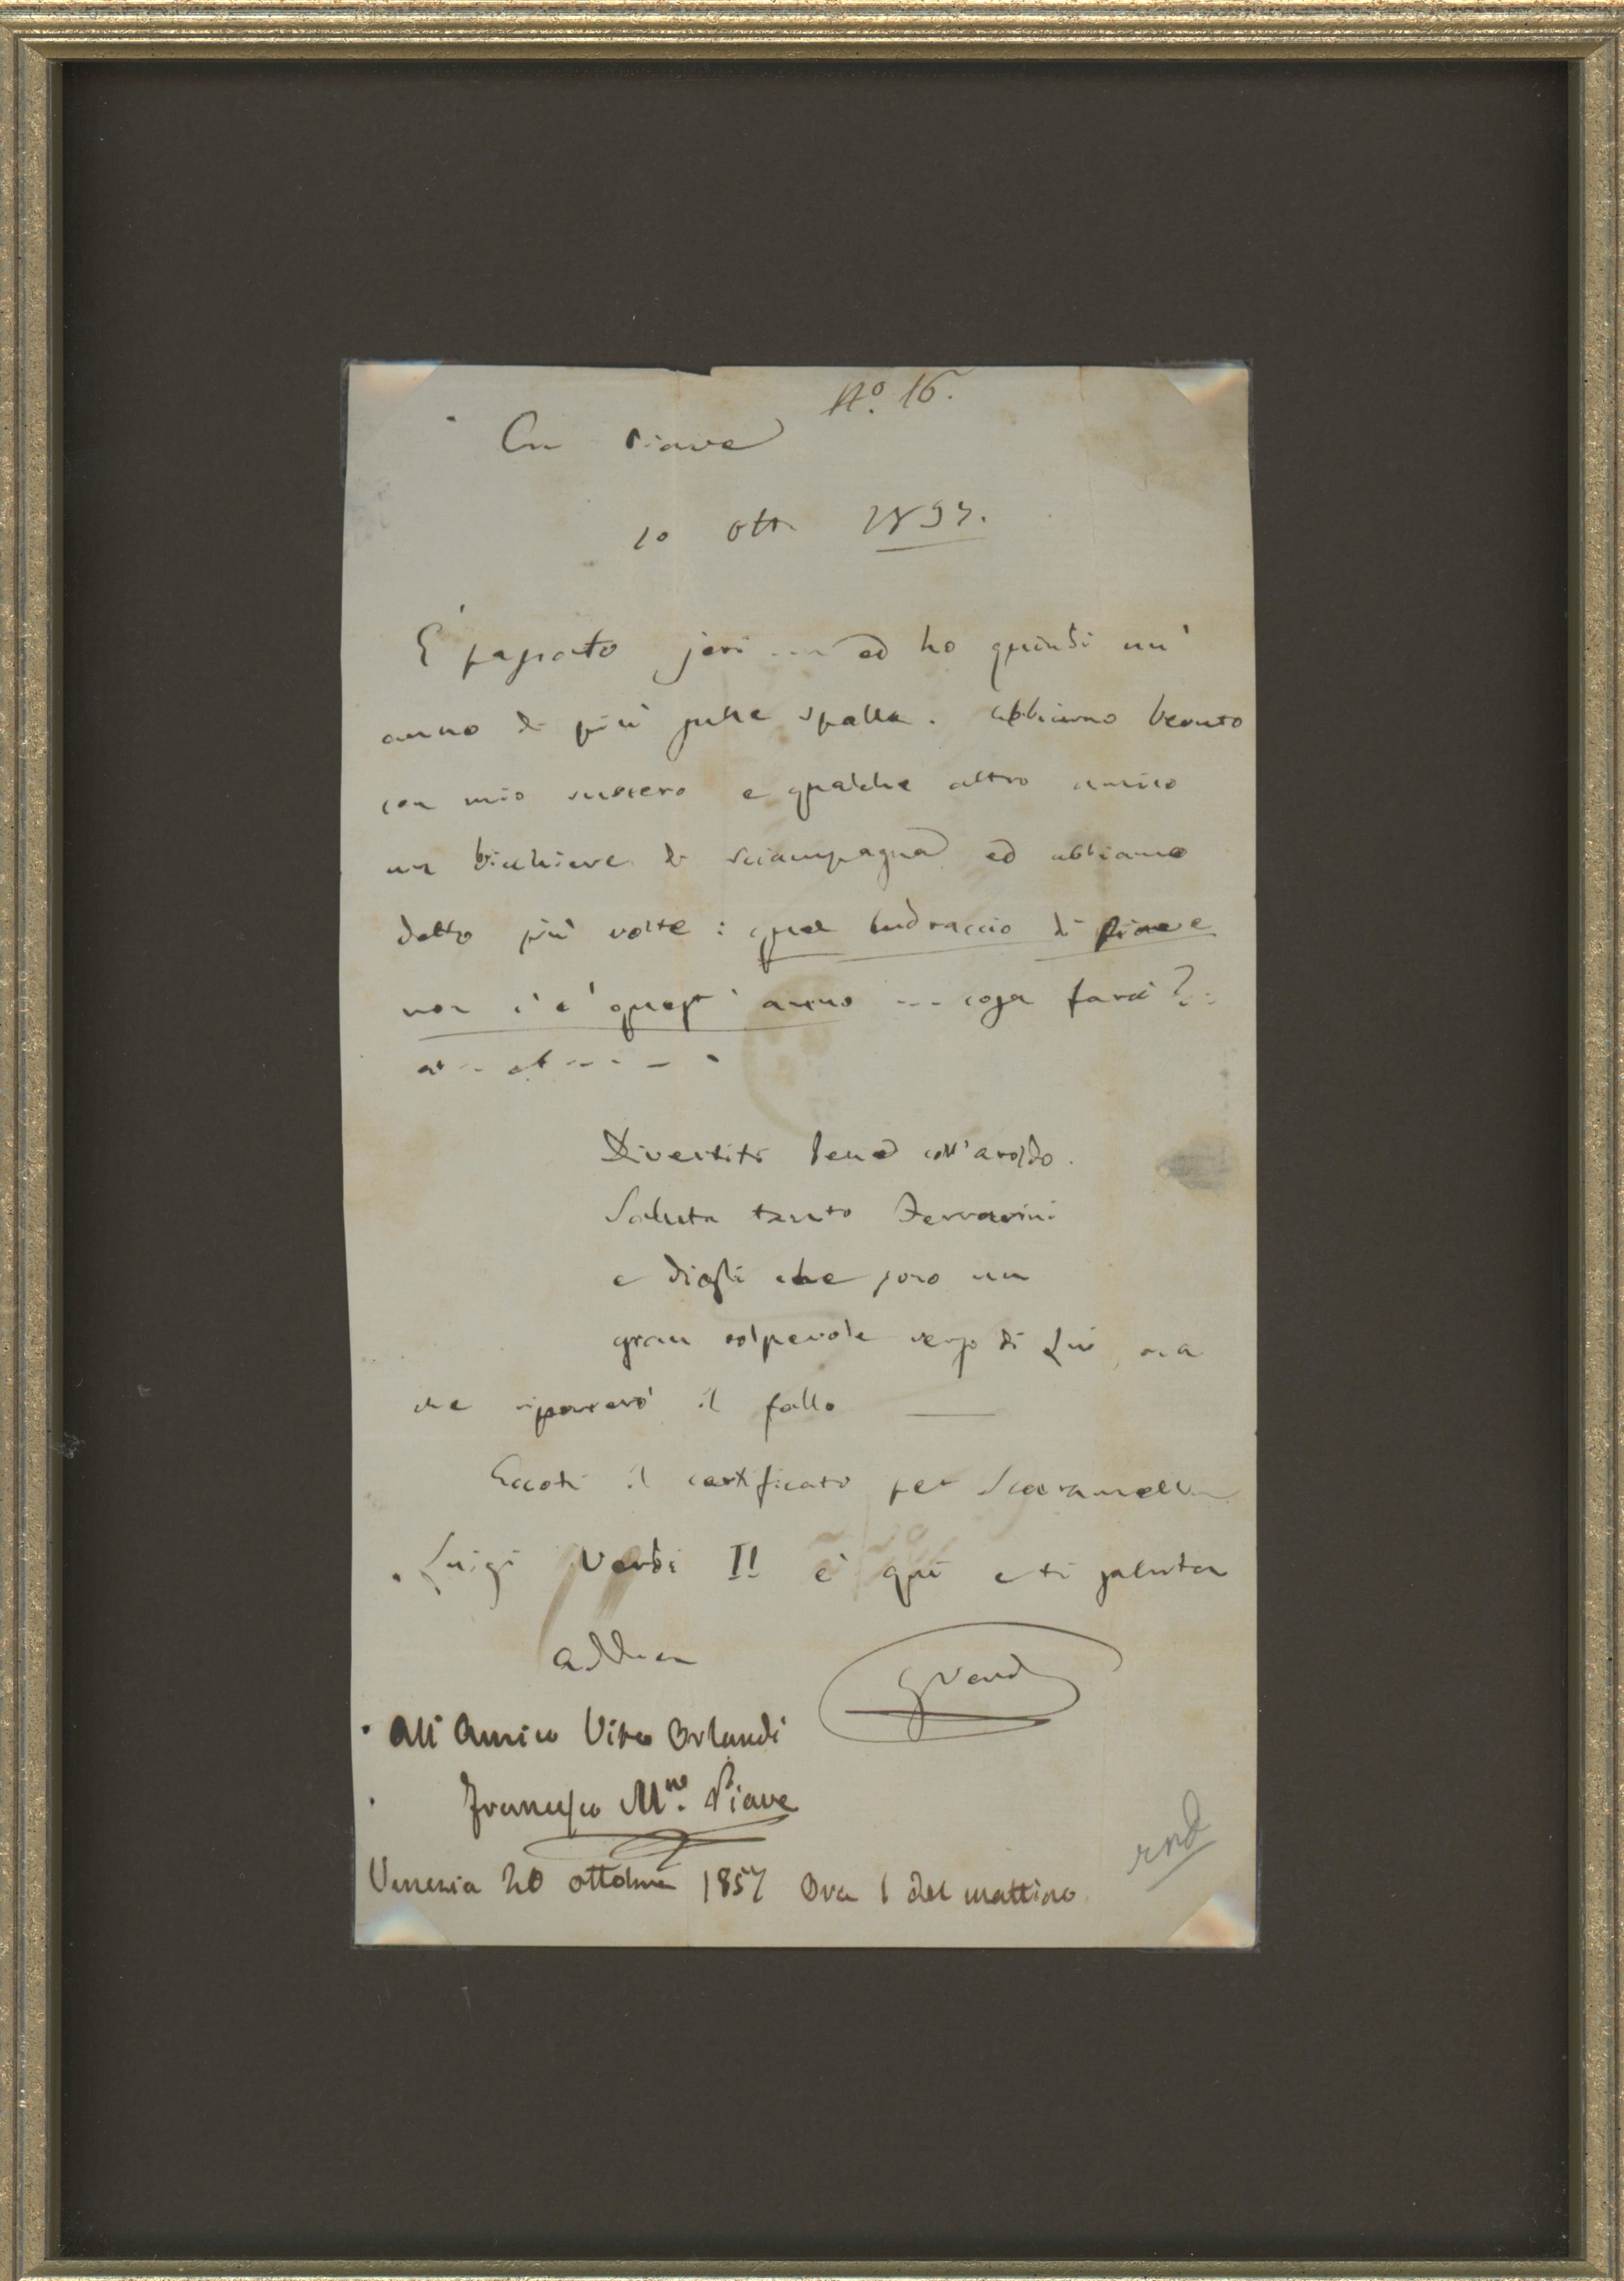 N.° 16.
Car Piave
10 Ott. 1857.
E' passato jeri .... ed ho quindi un'
anno di più sulle spalle. Abbiamo bevuto
con mio suocero e qualche altro amico
un bicchiere di sciampagna ed abbiamo
detto più volte: quel ludraccio di Piave
non c'e' quest' anno ... cosa fará?..
Divertiti bene coll'Aroldo.
Saluta tanto Ferrarini
e digli che sono un
gran colpevole verso di Lui, ma
che riparerò il fallo
Eccoti il certificato per
Luigi Verdi II è qui e ti saluta
Addio
G Verdi
All'Amico Vito Orlandi
Francesco M.ª Piave
Venezia 20 ottobre 1857 Ora 1 del mattino.